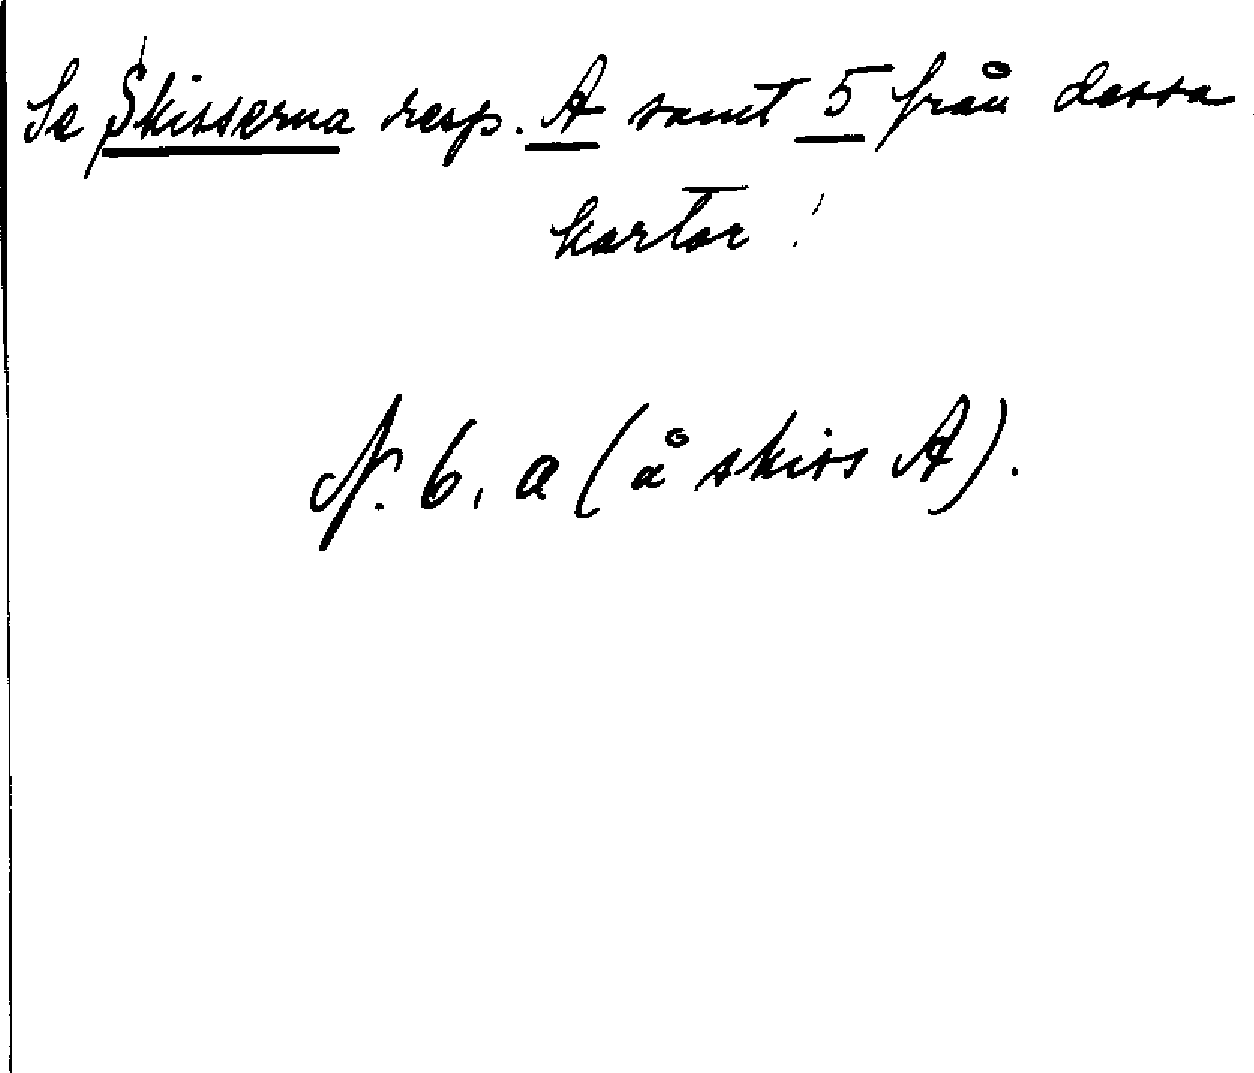 Se Skisserna resp. A samt 5 från dessa
kartor!
N. 6, a (å skiss A).